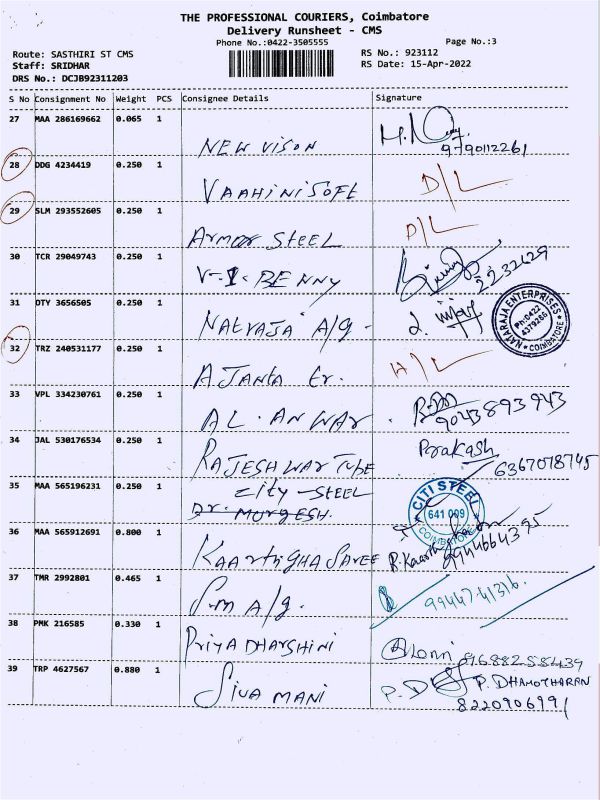 THE PROFESSIONAL COURIERS, Coimbatore
Delivery Runsheet - CMS
Phone No.:0422-3505555 Page No.:3
Route: SASTHIRI ST CMS RS No.: 923112
Staff: SRIDHAR RS Date: 15-Apr-2022
DRS No.: DCJB92311203
S No Consignment No Weight PCS Consignee Details Signature
27 MAA 286169662 0.065 1
NEW VISON 9790112261
28 DDG 4234419 0.250 1
VAAHINI SOFT D/L
29 SLM 293552605 0.250 1
ARMOR STEEL D/L
30 TCR 29049743 0.250 1
V-I- BENNY 2232629
31 DTY 3656505 0.250 1
NATVAJA A/g - NATARAJA ENTERPRISES PH:0422 4379266 COIMBATORE
32 TRZ 240531177 0.250 1
AJANTA Er. H/L
33 VPL 334230761 0.250 1
AL . ANWAR 9043893943
34 JAL 530176534 0.250 1 Prakash
RAJESHWAR TUBE 6367078745
35 MAA 565196231 0.250 1
CITY - STEEL CITI STEEL 641 009 COIMBATORE
Dr. MURGESH.
36 MAA 565912691 0.800 1
KAARTHIGHA SAREE 9944664395
37 TMR 2992801 0.465 1
S.m A/g. 99447 41316.
38 PMK 216585 0.330 1
PRIYADHARSHINI 8968825 58439
39 TRP 4627567 0.880 1
SIVA MANI P. DHAMOTHARAN
8220906991